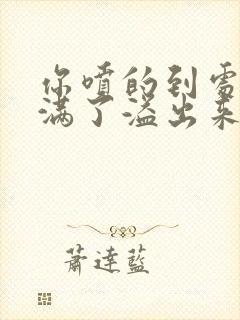 你喷的到处
满了溢出来
萧达蓝